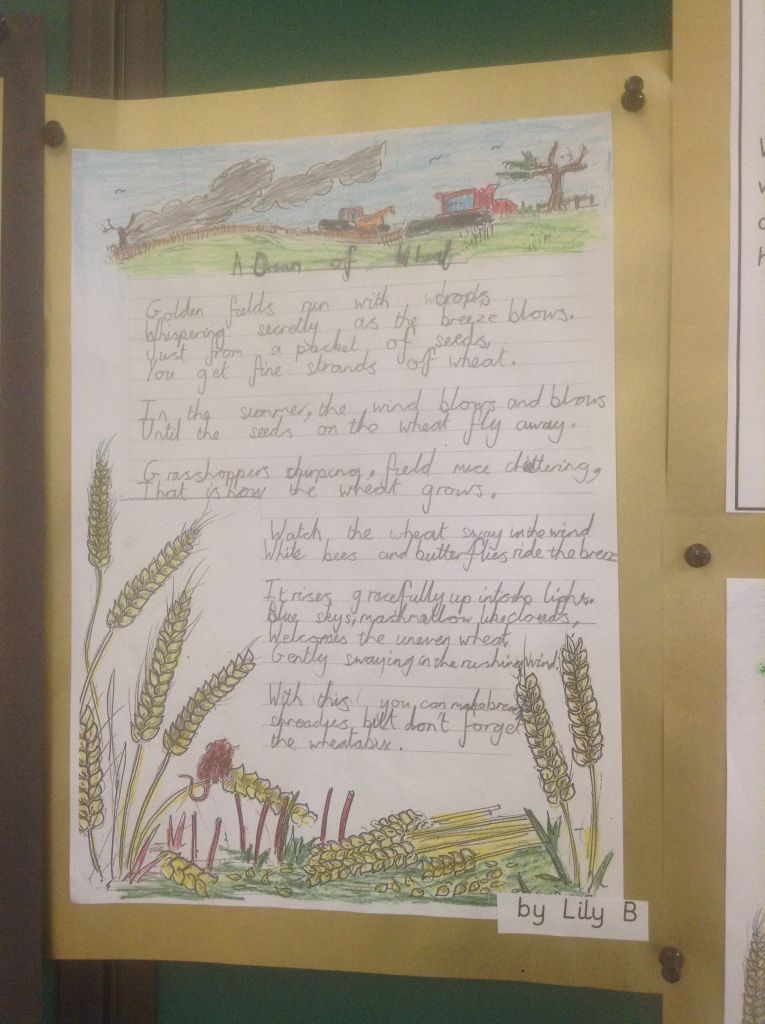 A Dream of Wheat
Golden fields run with
Whispering secretly as the breeze blows.
Just from a packet of seeds,
You get fine strands of wheat.
In the summer, the wind blows and blows
Until the seeds on the wheat fly away.
Grasshoppers chirping, field mice chattering,
That is how the wheat grows.
Watch the wheat sway in the wind
While bees and butterflies ride the breeze
It rises gracefully up into the light.
Blue skys, marshmallow like clouds,
Welcomes the uneven wheat,
Gently swaying in the rushing wind.
With this you can make
but don't forget
the wheatabix.
by Lily B